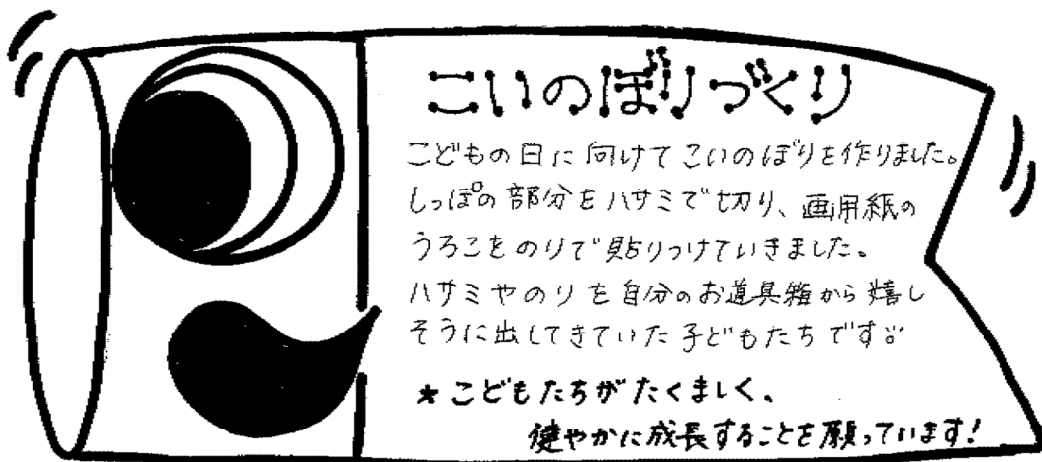 こいのぼりづくり
こどもの日に向けてこいのぼりを作りました。
しっぽの部分をハサミで切り、画用紙の
うろこをのりで貼りつけていきました。
ハサミやのりを自分のお道具箱から嬉し
そうに出してきていた子どもたちです。
★こどもたちがたくましく、
健やかに成長することを願っています!